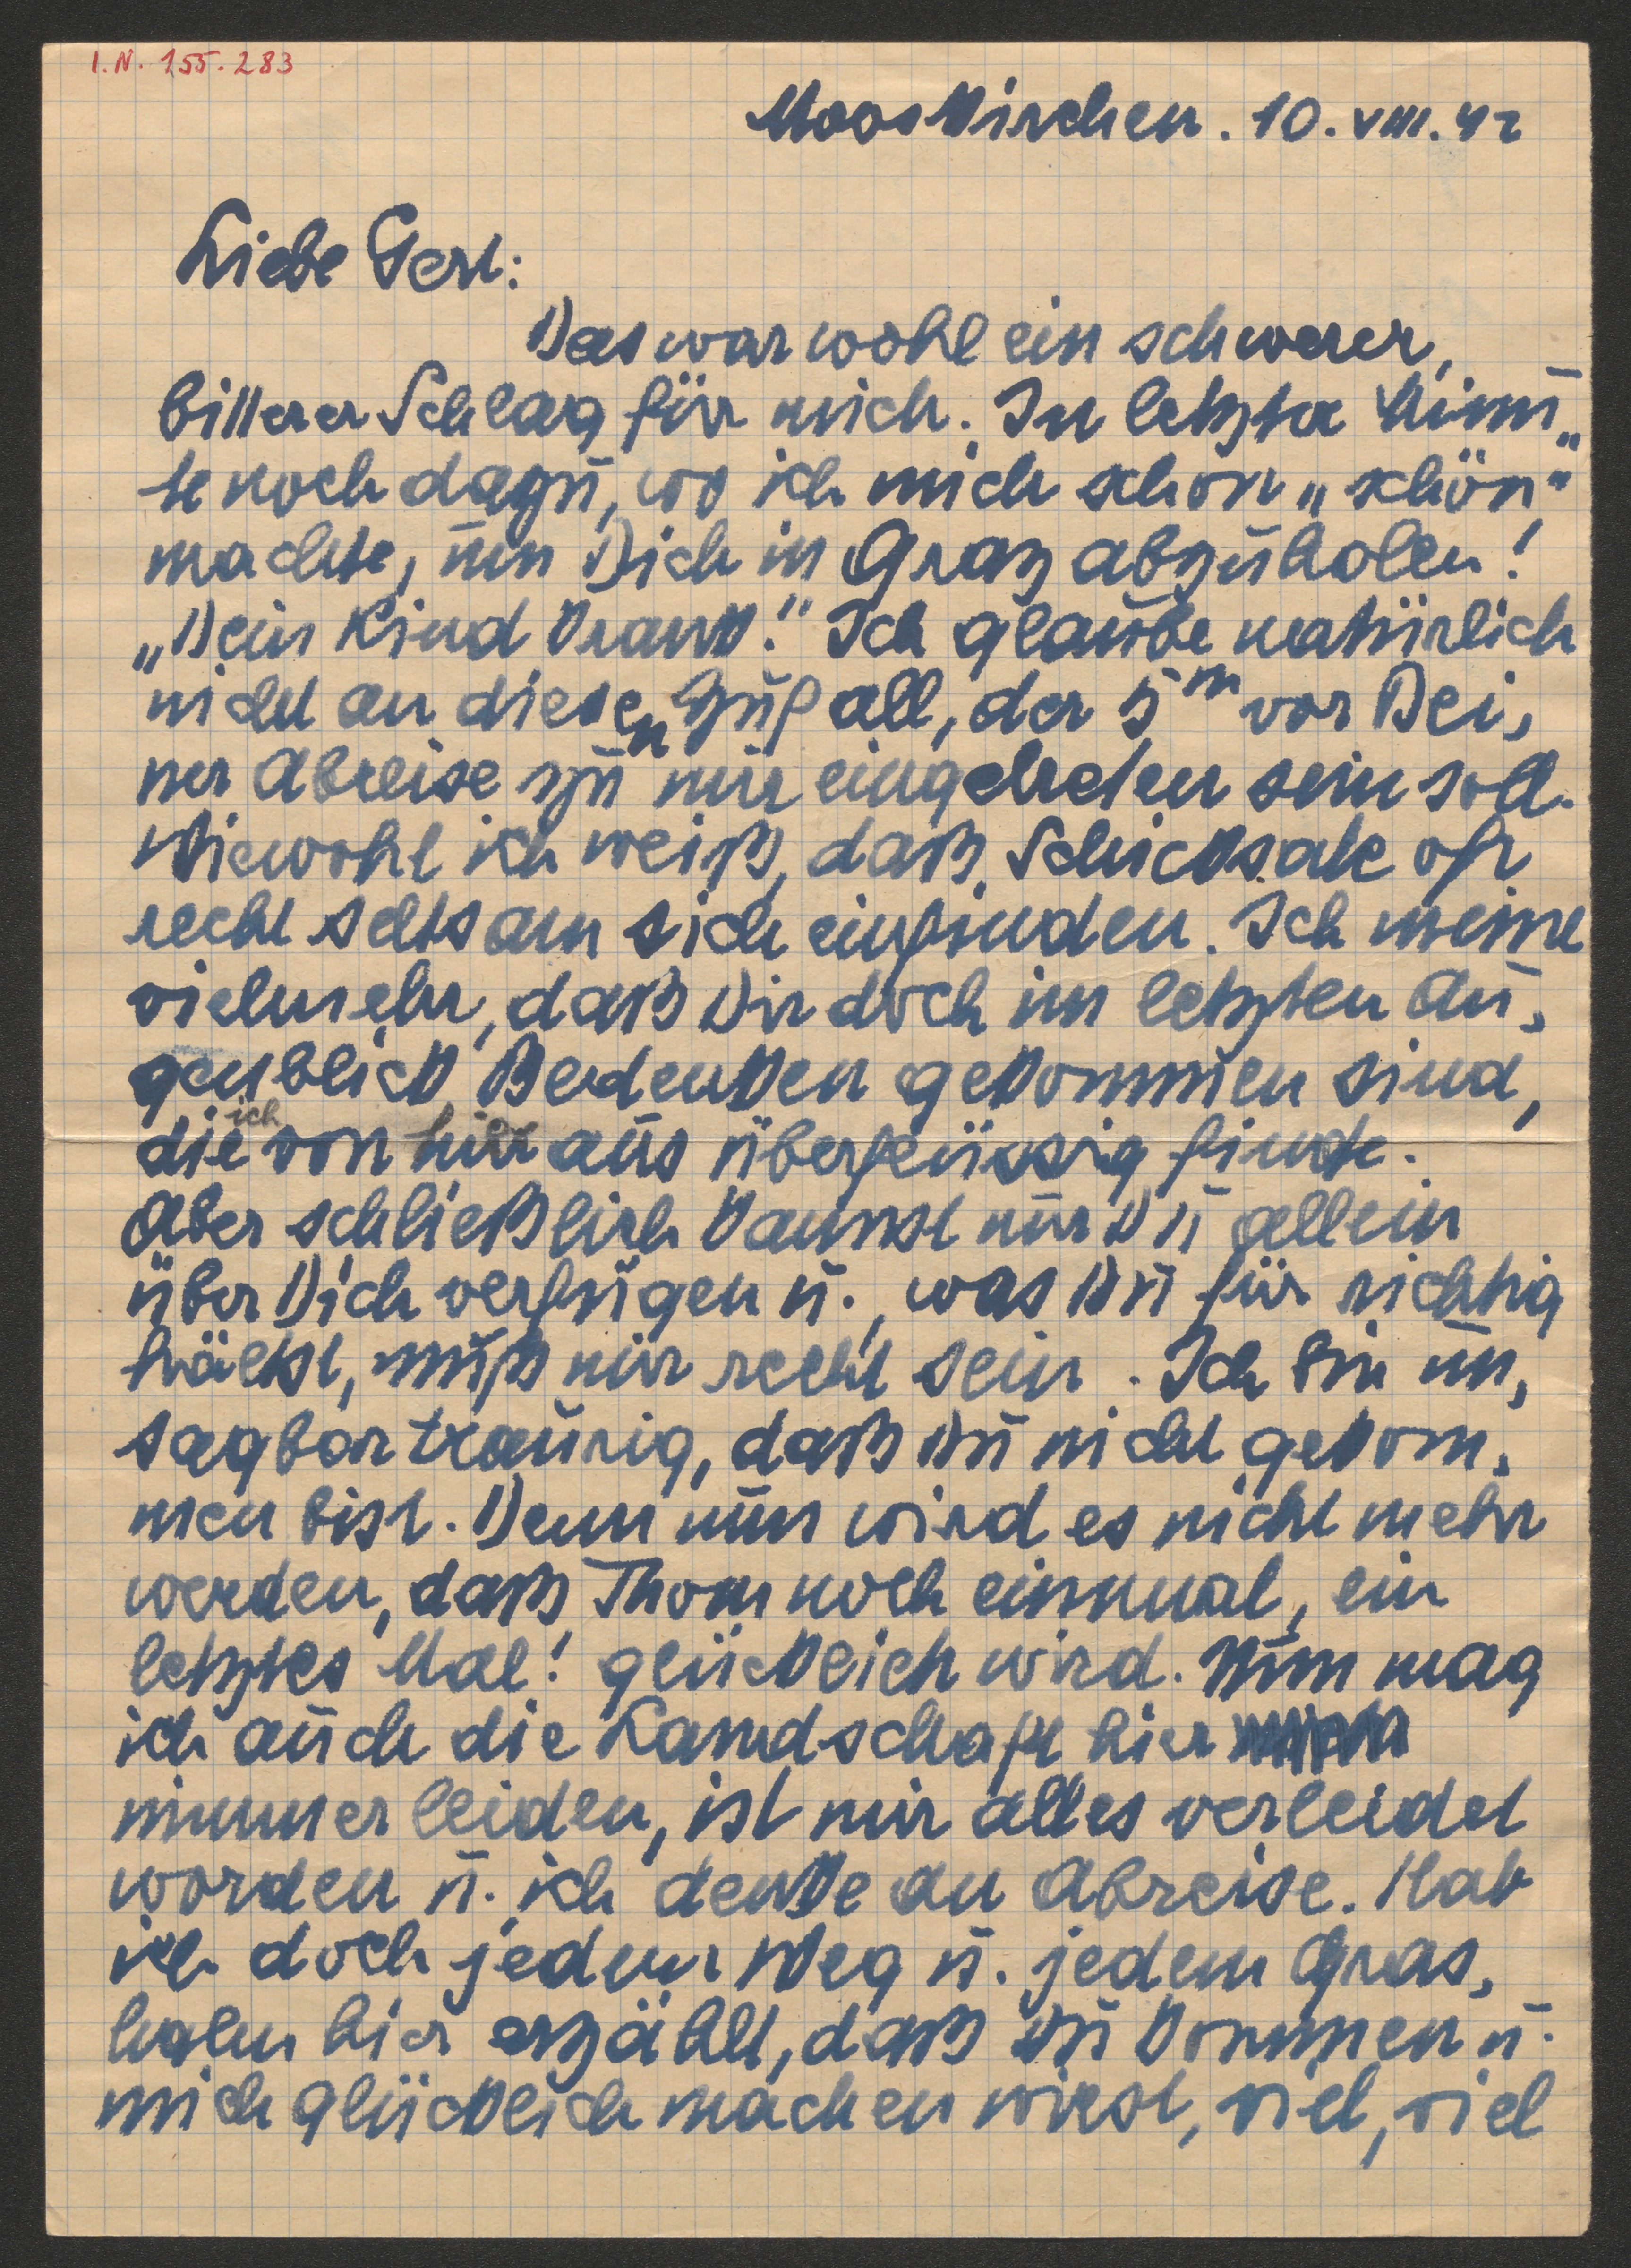 I.N. 155.283
Mooskirchen. 10. VIII. 42
Liebe Gerl:
Das war wohl ein schwerer,
bitterer Schlag für mich. In letzter Minu„
te noch dazu, wo ich mich schon „schön“
machte, um Dich in Graz abzuholen!
„Dein Kind krank!“ Ich glaube natürlich
nicht an diesen Zufall, der 5m vor Dei„
ner Abreise zu mir eingetreten sein soll.
Wiewohl ich weiß, daß Schicksale oft
recht seltsam sich einfinden. Ich meine
vielmehr, daß Dir doch im letzten Au„
genblick Bedenken gekommen sind,
die ich von hier aus überflüssig finde.
Aber schließlich kannst nur Du allein
über Dich verfügen u., was Du für richtig
hältst, muß mir recht sein. Ich bin un„
sagbar traurig, daß Du nicht gekom„
men bist. Denn nun wird es nicht mehr
werden, daß Thom noch einmal, ein
letztes Mal! glücklich wird. Nun mag
ich auch die Landschaft hier
nimmer leiden, ist mir alles verleidet
worden u. ich denke an Abreise. Hab
ich doch jedem Weg u. jedem Gras„
halm hier erzählt, daß Du kommen u.
mich glücklich machen wirst, viel, viel